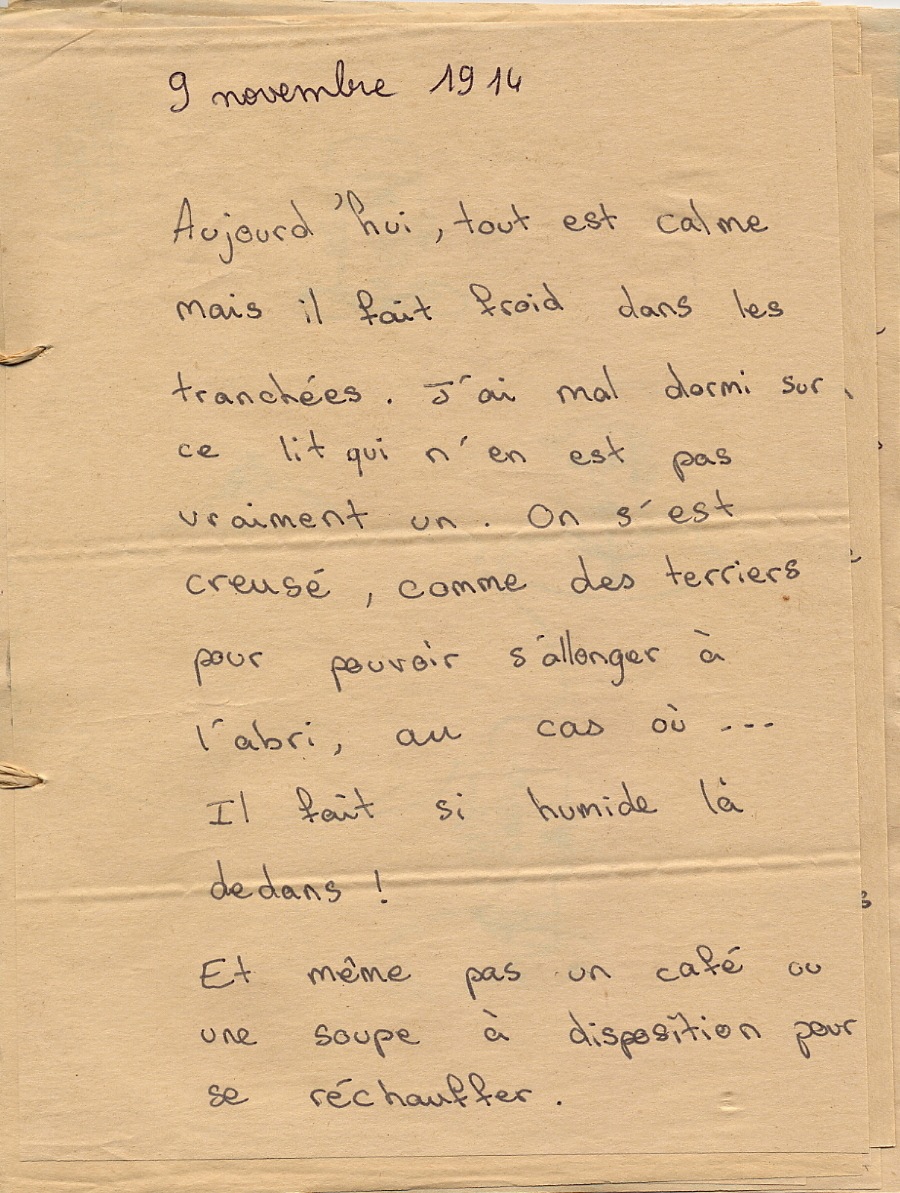 9 novembre 1914
Aujourd'hui, tout est calme
mais il fait froid dans les
tranchées. J'ai mal dormi sur
ce lit qui n'en est pas
vraiment un. On s'est
creusé, comme des terriers
pour pouvoir s'allonger à
l'abri, au cas où ...
Il fait si humide là
dedans !
Et même pas un café ou
une soupe à disposition pour
se réchauffer.